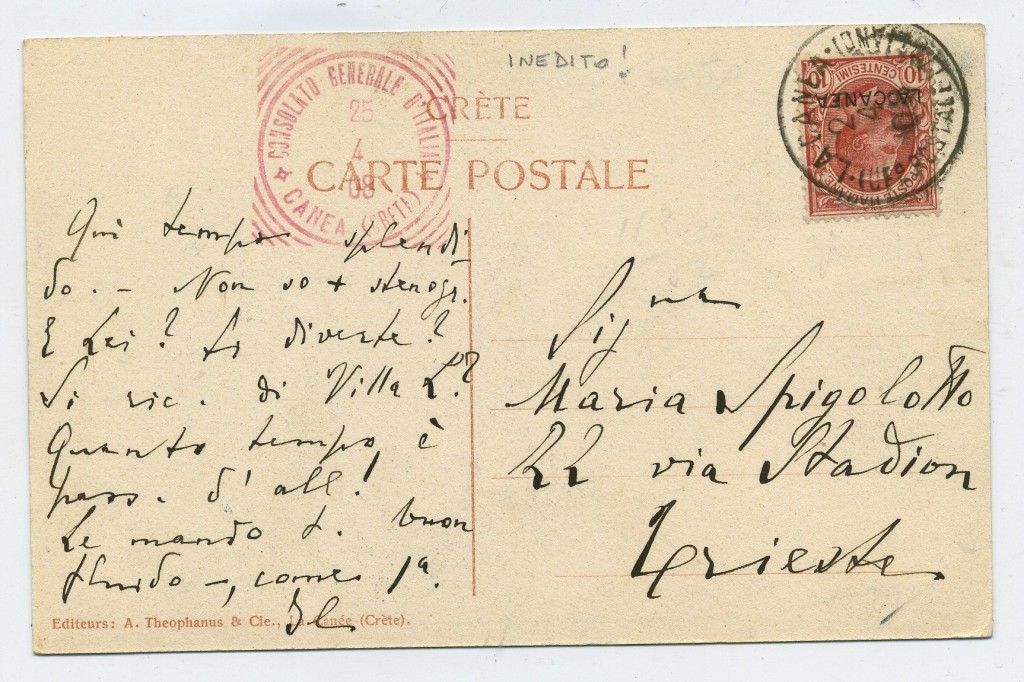 INEDITO!
CRÈTE
CARTE POSTALE
CONSOLATO GENERALE D'ITALIA
25
4
08
CANEA (CRETA)
10
CENTESIMI
LA CANEA
POSTE ITALIANE
LA CANEA
Qui tempo splendi-
do. - Non so + stenogr.
E Lei? Si diverte?
Si ric. di Villa L.?
Quanto tempo è
pass. d' all.!
Le mando t. buon
fluido -, come 1ª.
Signa
Maria Spigolotto
22 via Stadion
Trieste
Editeurs: A. Theophanus & Cie., La Canée (Crète).